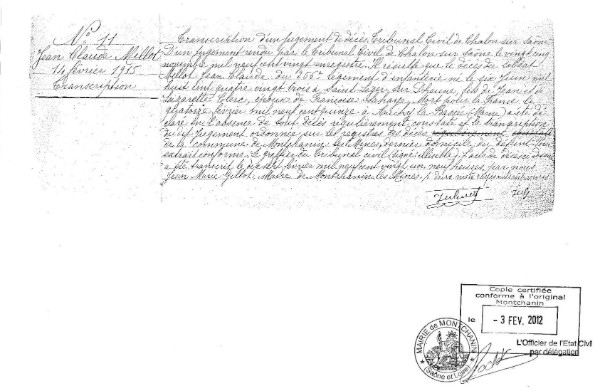 N° 11
Jean Claude Millot
14 février 1915
Transcription
Transcription d'un jugement de décès, Tribunal Civil de Chalon sur Saône
D'un jugement rendu par le Tribunal Civil de Chalon sur Saône le vingt cinq
novembre mil neuf cent vingt enregistré. Il résulte que le décès du soldat
Millot Jean Claude du 256e régiment d'infanterie né le six Juin mil
huit cent quatre vingt trois à Saint Léger sur Dheune, fils de Jean et de
Lazarette Clerc, époux de Francoise Mort pour la France le
quatorze février mil neuf cent quinze à
déclaré en l'absence de tout décès régulièrement constaté et la transcription
du dit jugement ordonnée sur les registres des décès
de la commune de Montchanin les Mines dernier domicile du défunt. Pour
extrait conforme. Le greffier du Tribunal civil (signé illisible)
a été transcrit le mil neuf cent vingt un neuf heures, par nous
Jean Marie Maire de Montchanin les Mines
Copie certifiée
conforme à l'original
Montchanin
le - 3 FEV. 2012
L'Officier de l'Etat Civil
par délégation
MAIRIE de MONTCHANIN
(Saône et Loire)